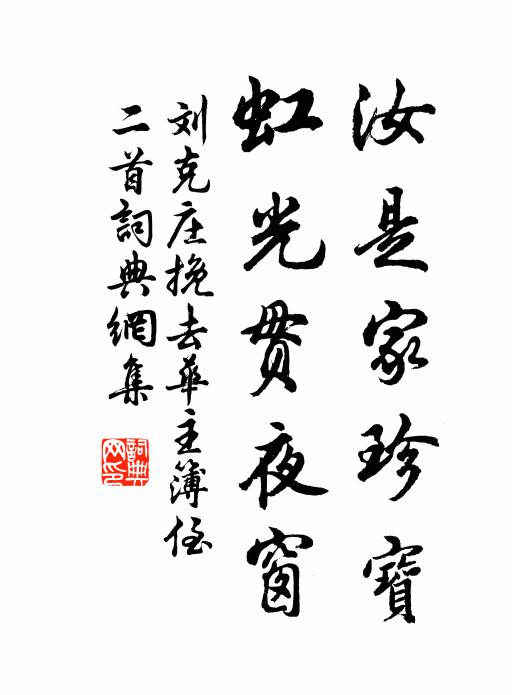 汝是家珍寶
虹光貫夜窗
刘克庄挽去華主簿侄
二首詞典網集
詞典网印